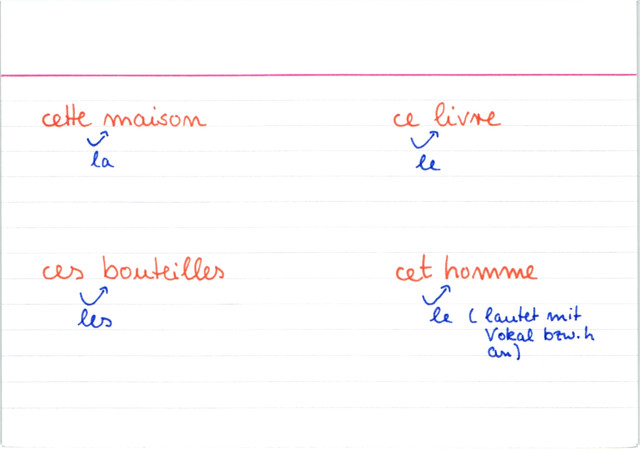 cette maison
la
ce livre
le
ces bouteilles
les
cet homme
le (lautet mit
Vokal bzw. h
an)